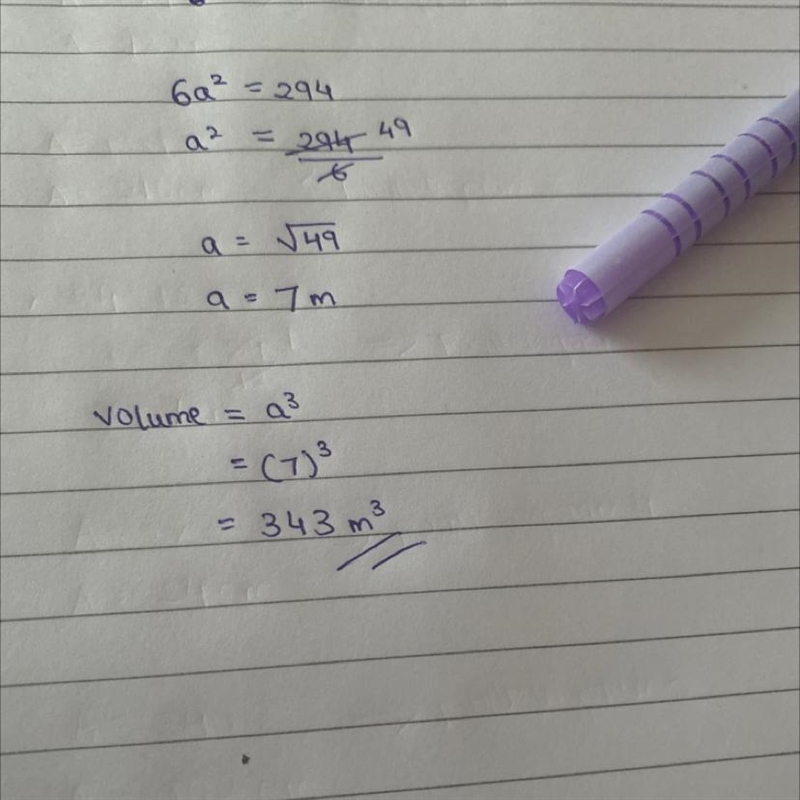 6a² = 294
a² = 294/6 49
a = √49
a = 7 m
Volume = a³
= (7)³
= 343 m³